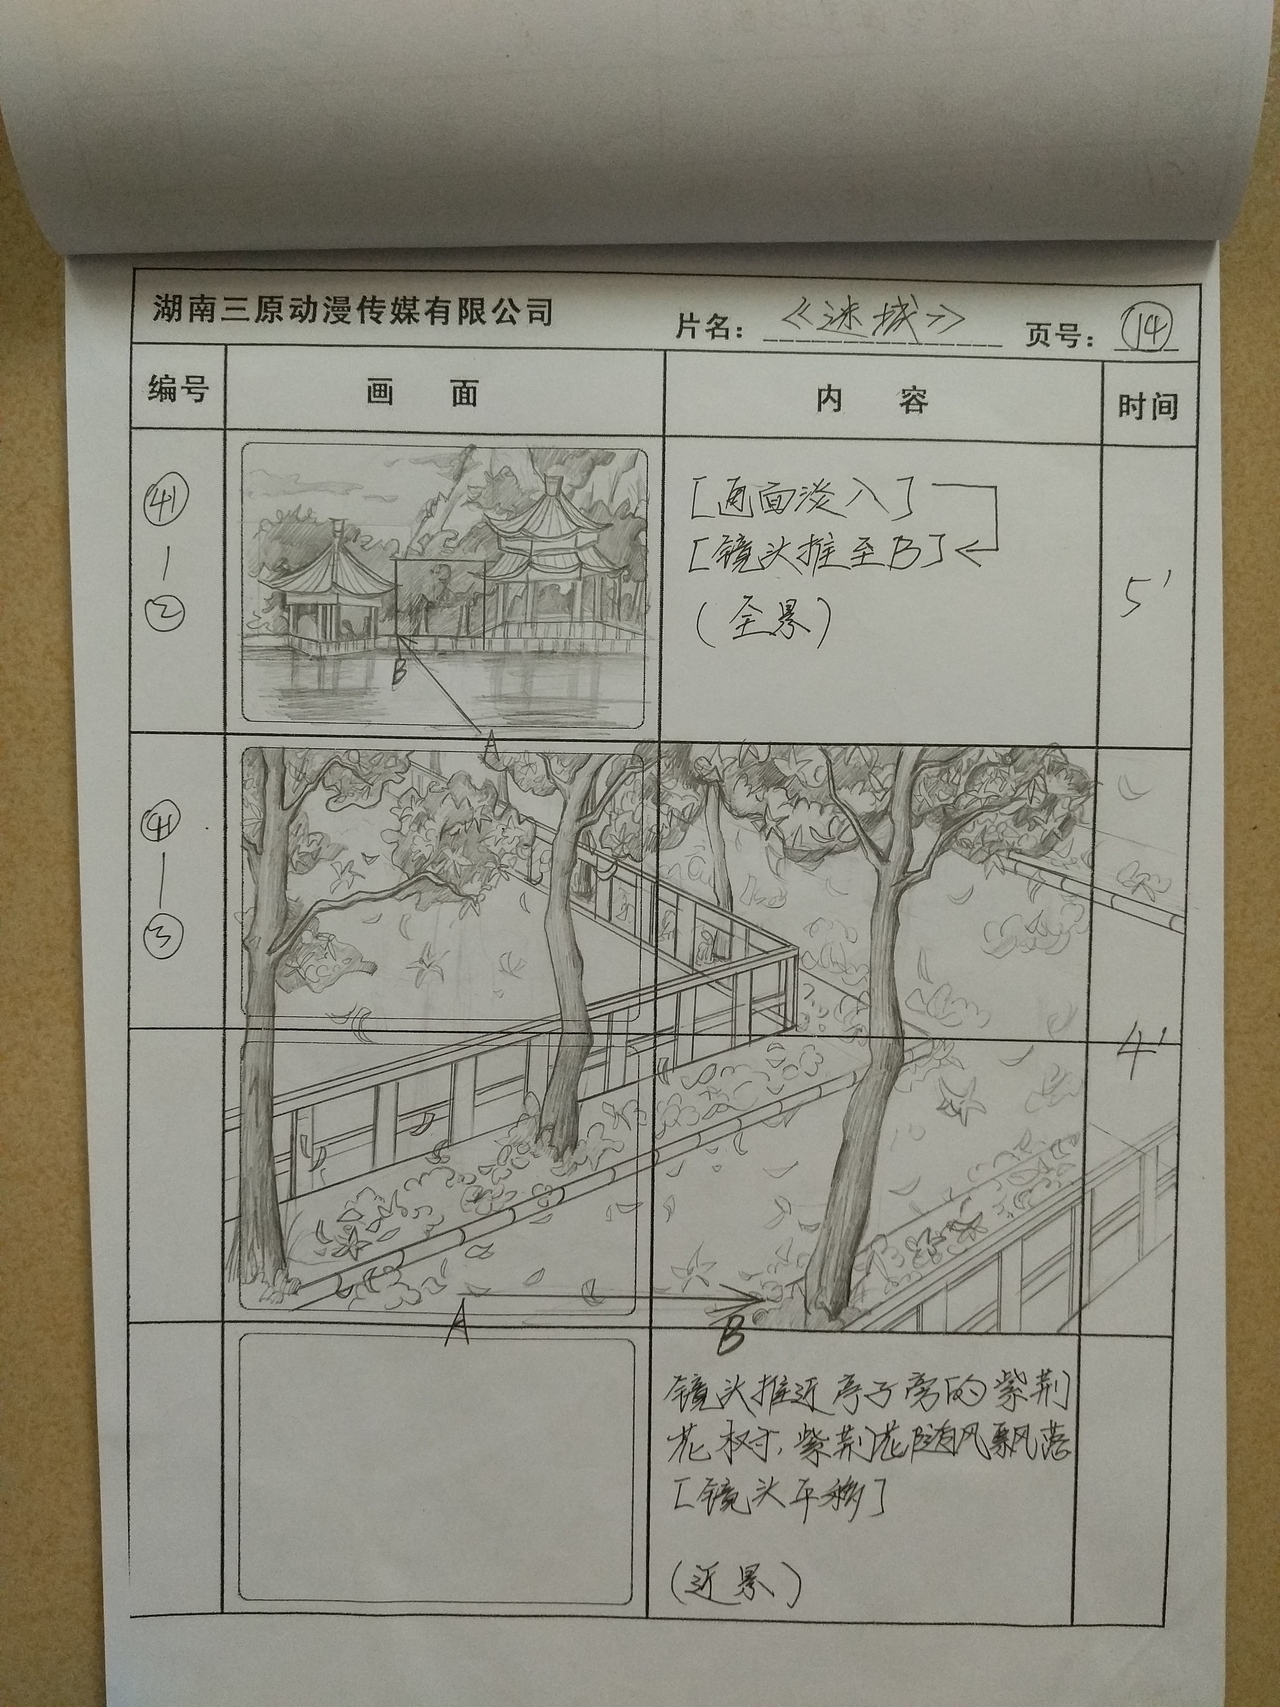 湖南三原动漫传媒有限公司 片名：《迷城》 页号：⑭
编号 画 面 内 容 时间
㊶
②
[画面淡入]
[镜头推至B]
(全景)
5'
B
A
㊶
③
4'
A B
镜头推近亭子旁的紫荆
花树，紫荆花随风飘落
[镜头平移]
(近景)